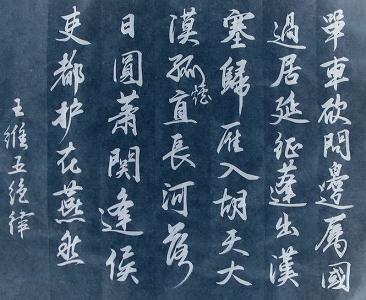 單車欲問邊屬國
過居延征蓬出漢
塞歸雁入胡天大
漠孤煙直長河落
日圓蕭関逢侯
吏都护在燕然
王維五絕律